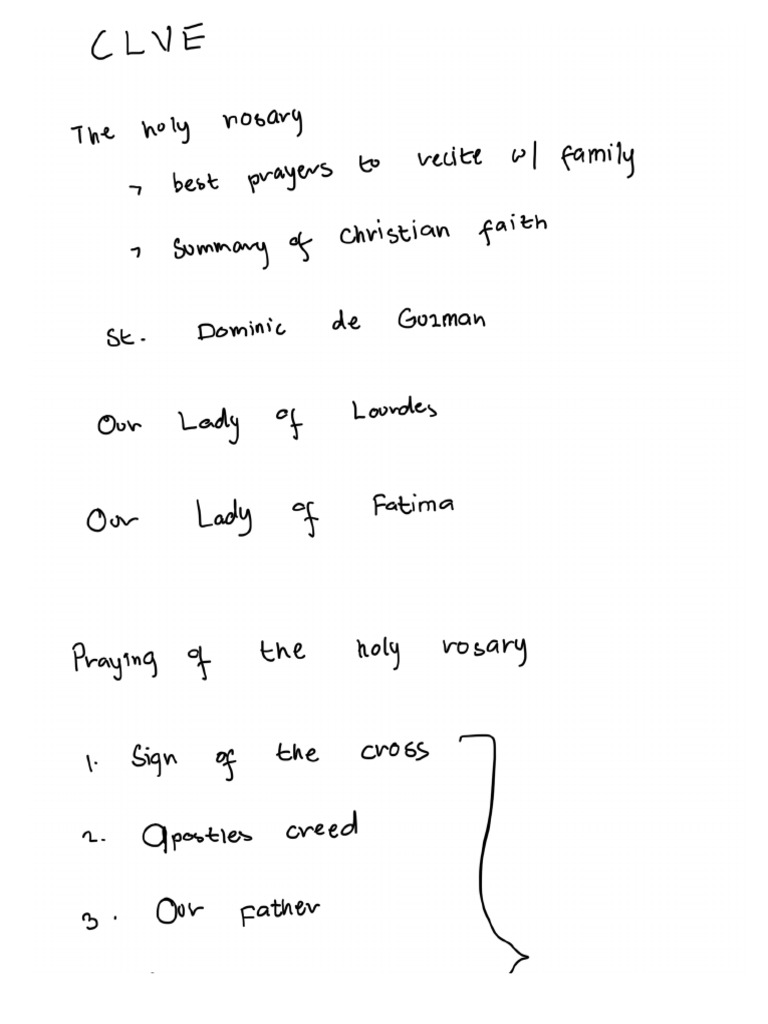 CLVE
The holy rosary
→ best prayers to recite w/ family
→ Summary of Christian faith
St. Dominic de Guzman
Our Lady of Lourdes
Our Lady of Fatima
Praying of the holy rosary
1. Sign of the cross
2. Apostles creed
3. Our Father